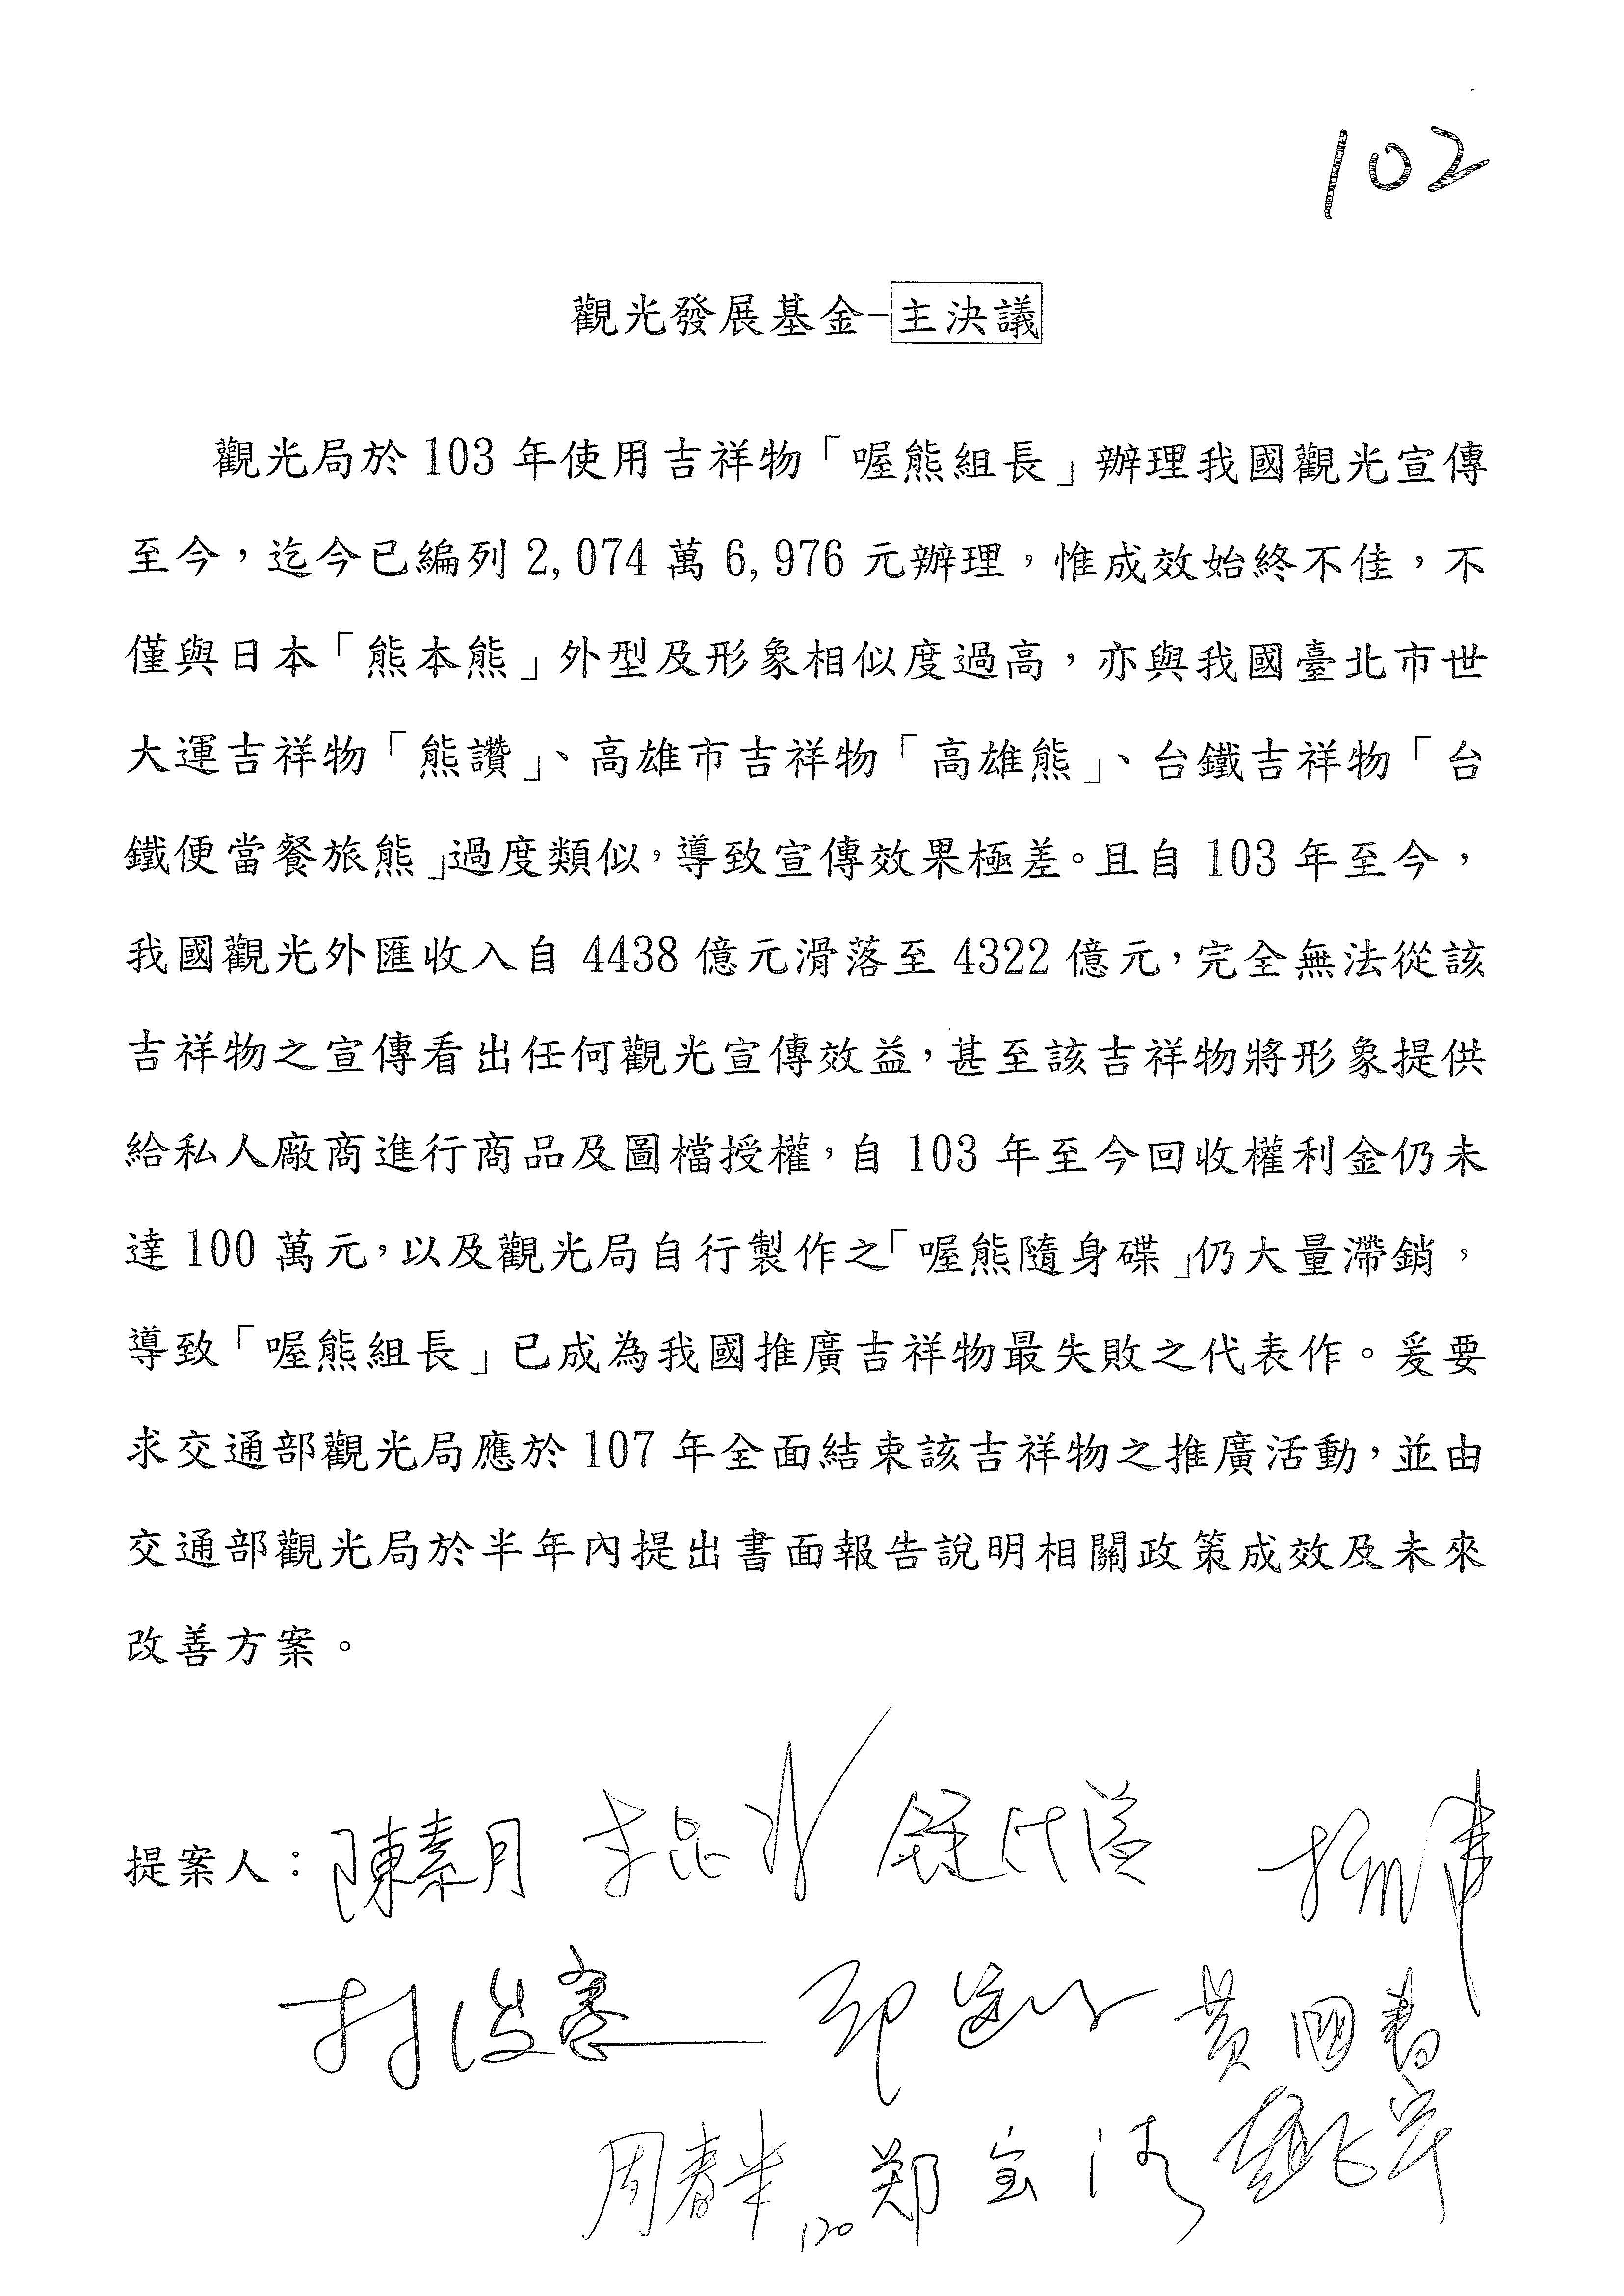 102
觀光發展基金-主決議
觀光局於 103 年使用吉祥物「喔熊組長」辦理我國觀光宣傳
至今，迄今已編列 2,074 萬 6,976 元辦理，惟成效始終不佳，不
僅與日本「熊本熊」外型及形象相似度過高，亦與我國臺北市世
大運吉祥物「熊讚」、高雄市吉祥物「高雄熊」、台鐵吉祥物「台
鐵便當餐旅熊」過度類似，導致宣傳效果極差。且自 103 年至今，
我國觀光外匯收入自 4438 億元滑落至 4322 億元，完全無法從該
吉祥物之宣傳看出任何觀光宣傳效益，甚至該吉祥物將形象提供
給私人廠商進行商品及圖檔授權，自 103 年至今回收權利金仍未
達 100 萬元，以及觀光局自行製作之「喔熊隨身碟」仍大量滯銷，
導致「喔熊組長」已成為我國推廣吉祥物最失敗之代表作。爰要
求交通部觀光局應於 107 年全面結束該吉祥物之推廣活動，並由
交通部觀光局於半年內提出書面報告說明相關政策成效及未來
改善方案。
提案人：陳素月
林俊憲 黃國書
周春米 鄭宝清
120